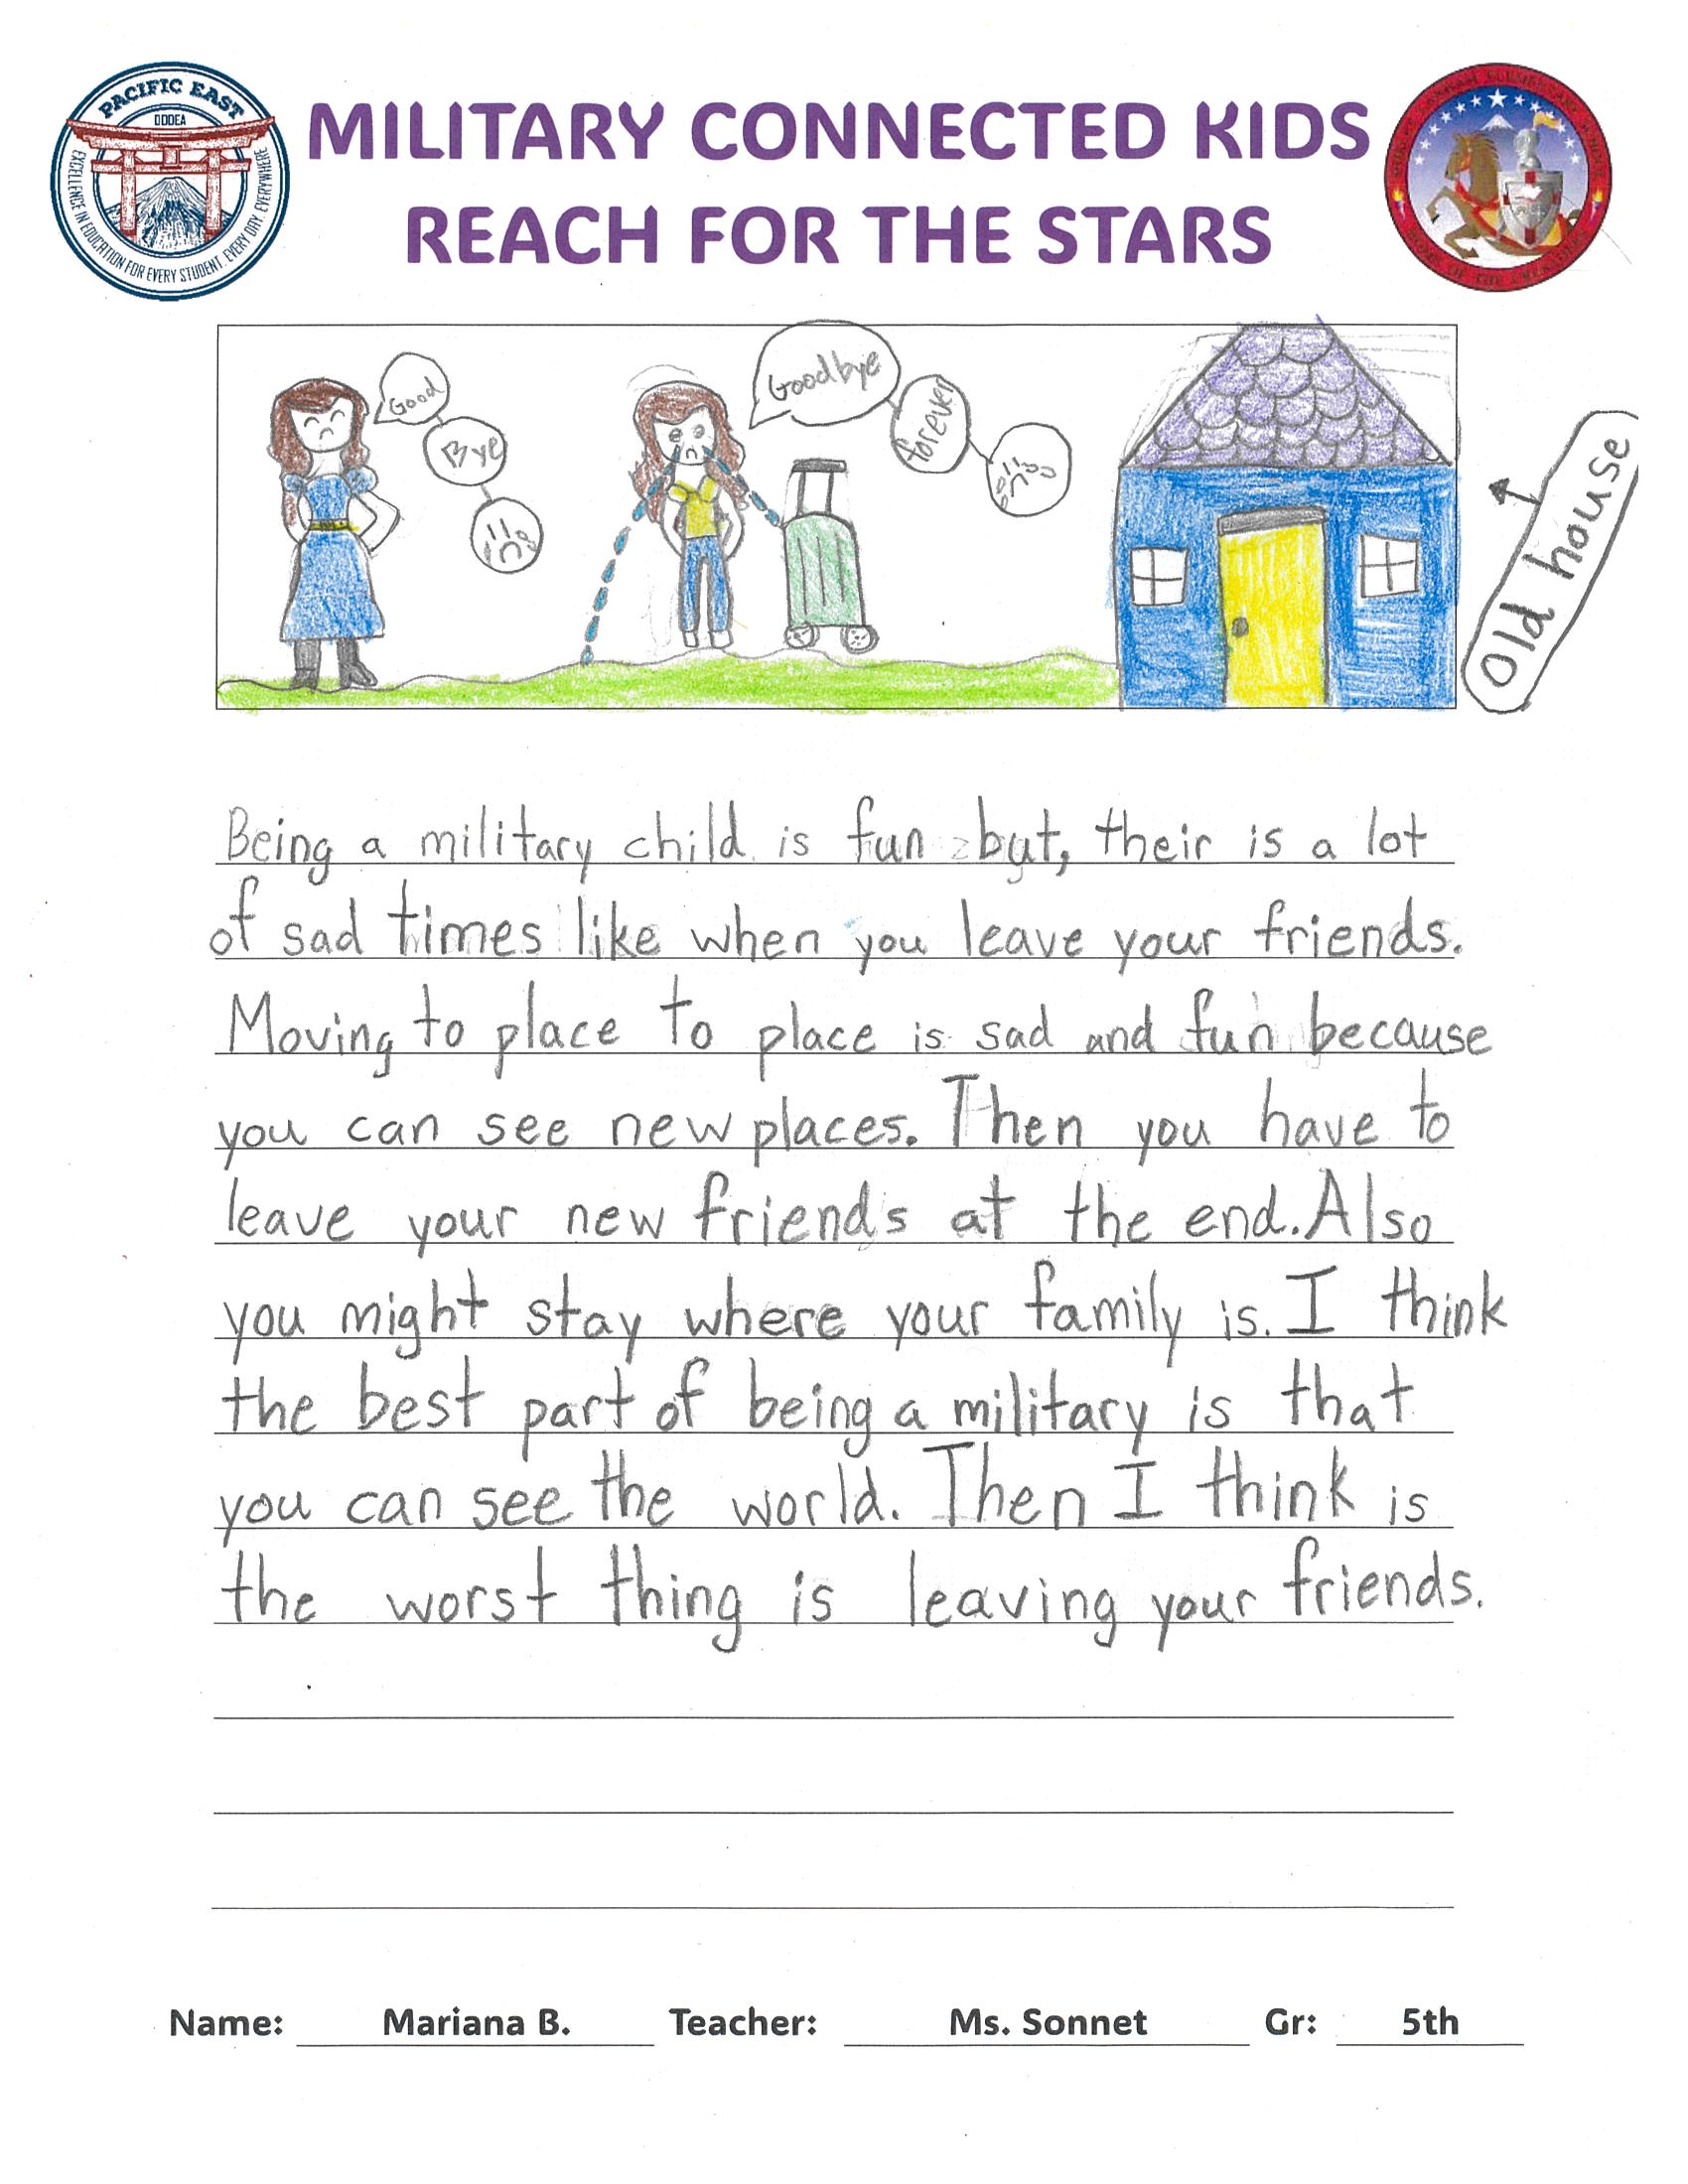 PACIFIC EAST
DODEA
EXCELLENCE IN EDUCATION FOR EVERY STUDENT, EVERY DAY, EVERYWHERE
MILITARY CONNECTED KIDS
REACH FOR THE STARS
Good
Bye
Goodbye
forever
Old house
Being a military child is fun but, their is a lot
of sad times like when you leave your friends.
Moving to place to place is sad and fun because
you can see new places. Then you have to
leave your new friends at the end. Also
you might stay where your family is. I think
the best part of being a military is that
you can see the world. Then I think is
the worst thing is leaving your friends.
Name: Mariana B. Teacher: Ms. Sonnet Gr: 5th